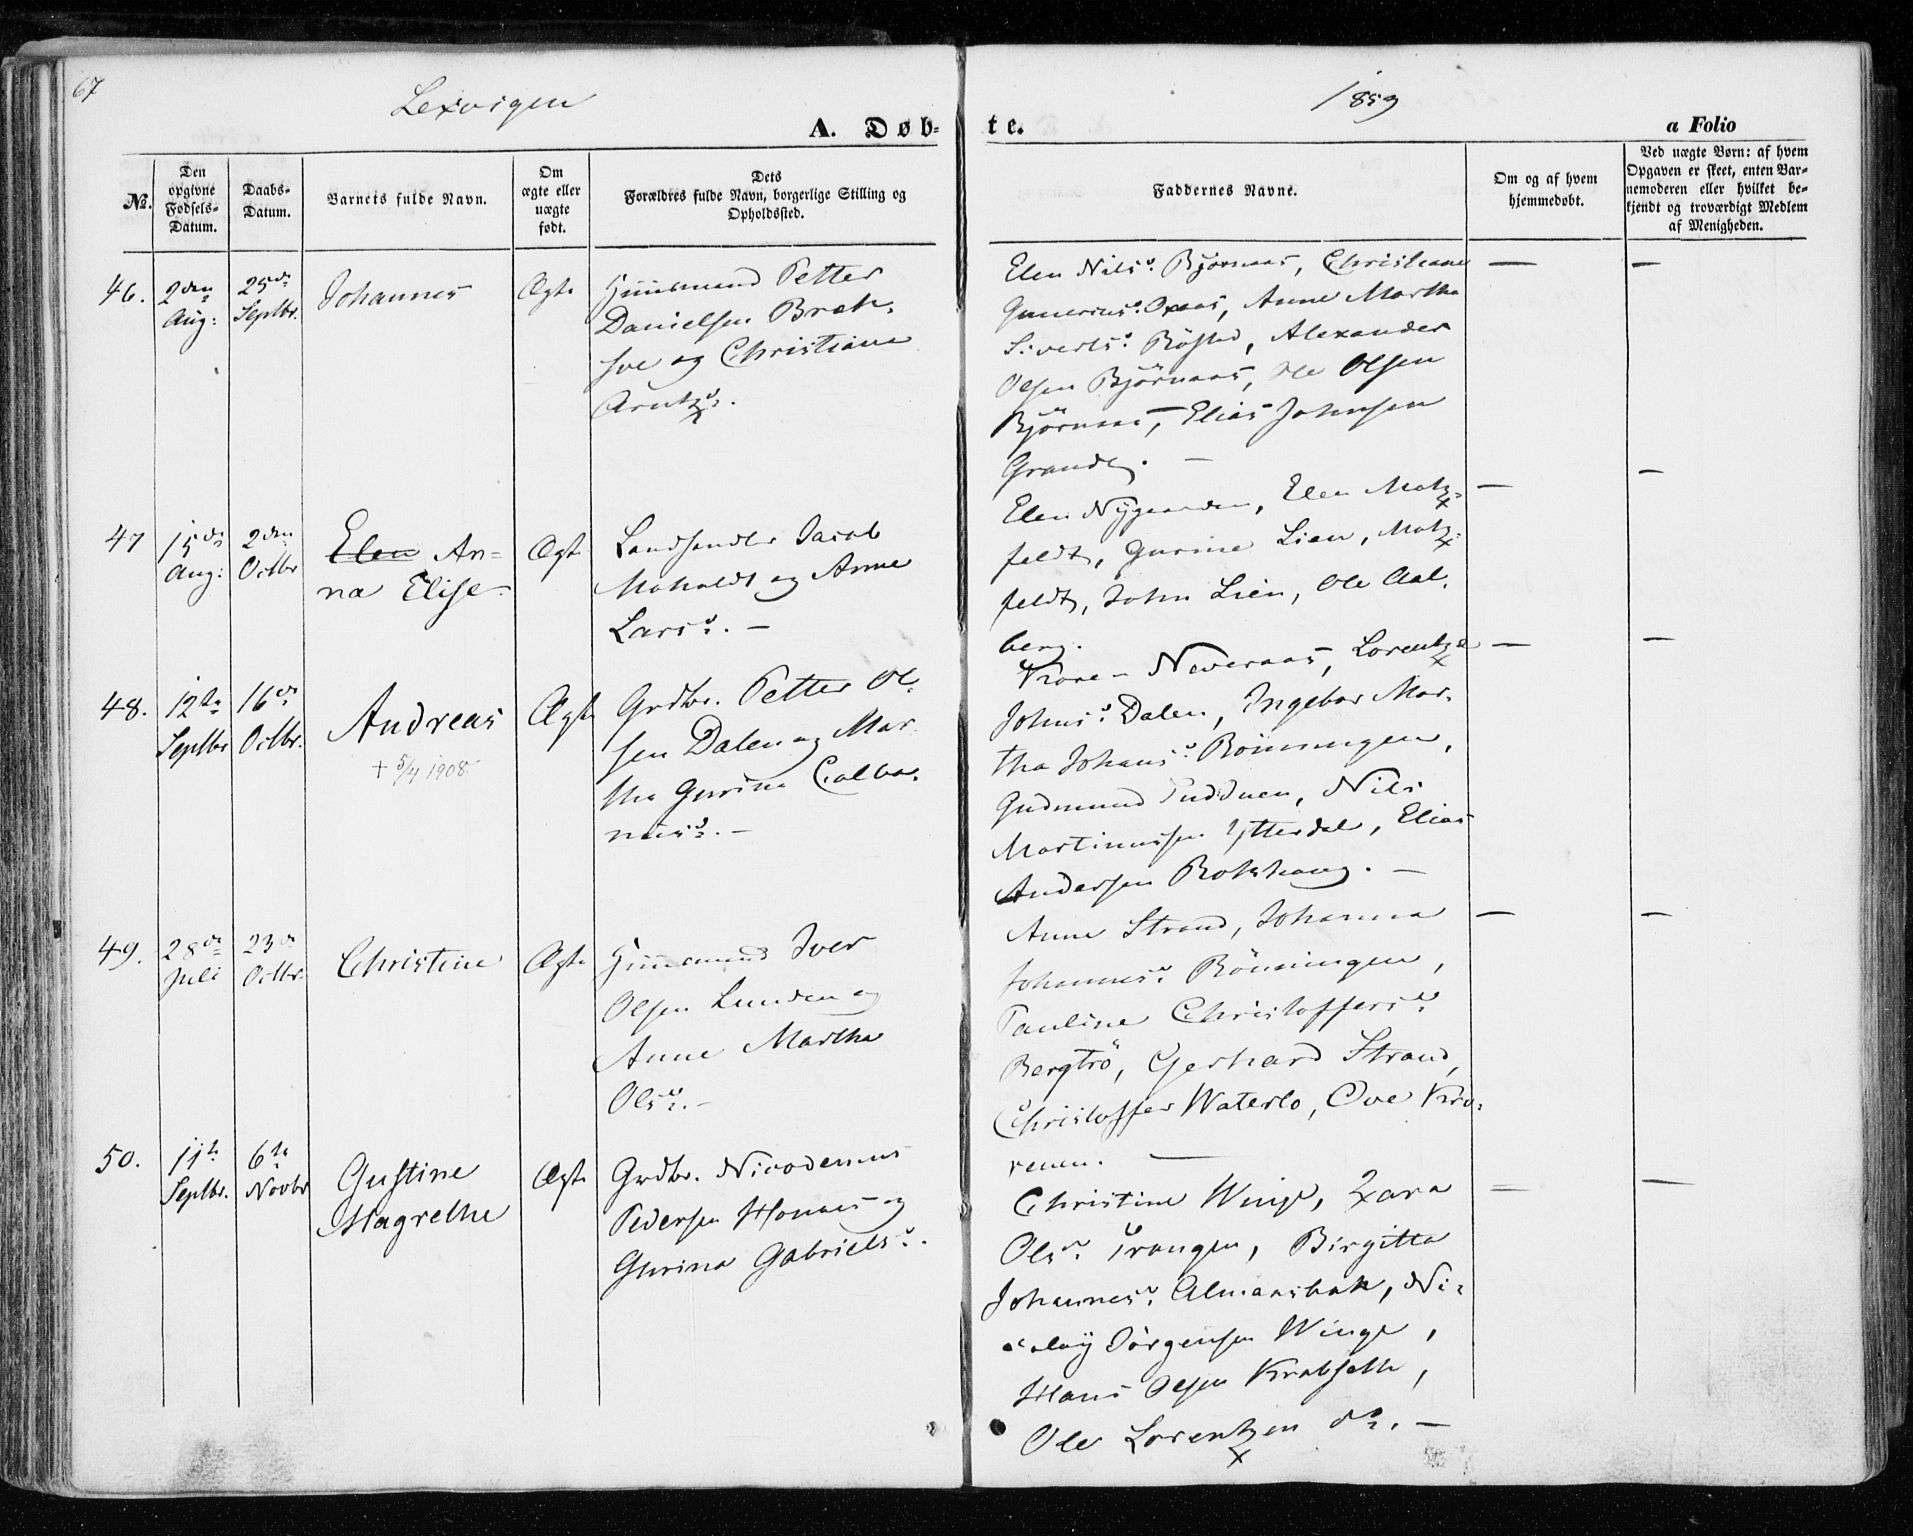 67
Lexvigen
1859
A. Døb-
te.
a Folio
№.
Den
opgivne
Fødsels-
Datum.
Daabs-
Datum.
Barnets fulde Navn.
Om
ægte eller
uægte
født.
Dets
Forældres fulde Navn, borgerlige Stilling og
Opholdssted.
Faddernes Navne.
Om og af hvem
hjemmedøbt.
Ved uægte Børn: af hvem
Opgaven er skeet, enten Bar-
nemoderen eller hvilket be-
kjendt og troværdigt Medlem
af Menigheden.
46.
2den
Aug:
25de
Septbr.
Johannes
Ægte
Huusmand Petter
Danielsen Bræk-
hoe og Christiane
Arntzd.
Elen Nilsd. Björnaas, Christiane
Gunneriusd. Oxaas, Anne Martha
Sivertsd. Röstad, Alexander
Olsen Björnaas, Ole Olsen
Björnaas, Elias Johnsen
Grande. —
—
—
47
15de
Aug:
2den
Octbr
Elen An-
na Elise
Ægte
Landhandler Jacob
Moholdt og Anne
Larsd. —
Elen Nygaarden, Elen Motz-
feldt, Gurine Lien, Motz-
feldt, John Lien, Ole Aal-
berg.
—
—
48.
12te
Septbr
16de
Octbr.
Andreas
+ 5/4 1908.
Ægte
Grdbr. Petter Ol-
sen Dalen og Mar-
tha Gurine
nusd. —
Neveraas, Lorentze
Johnsd. Dalen, Ingebor Mar-
tha Johansd. Rönningen,
Gudmund Nils
Martinussen Ytterdal, Elias
Andersen Rokhaug. —
—
—
49.
28de
Juli
23de
Octbr.
Christine
Ægte
Huusmand Iver
Olsen Lunden og
Anne Martha
Olsd. —
Anne Strand, Johanna
Johannesd. Rönningen,
Pauline Christoffersd.
Bergtrö, Gerhard Strand,
Christoffer Waterlo, Ove Kro-
renen. —
—
—
50.
11te
Septbr.
6te
Novbr
Gustine
Magrethe
Ægte
Grdbr. Nicodemus
Pedersen Hornes og
Gurina Gabrielsd.
Christine Winge, Zara
Olsd. Vrangen, Birgitta
Johannesd. Almaasbak, Ni-
colay Jörgensen Winge,
Hans Olsen Krabsæth,
Ole Lorentzen do. —
—
—